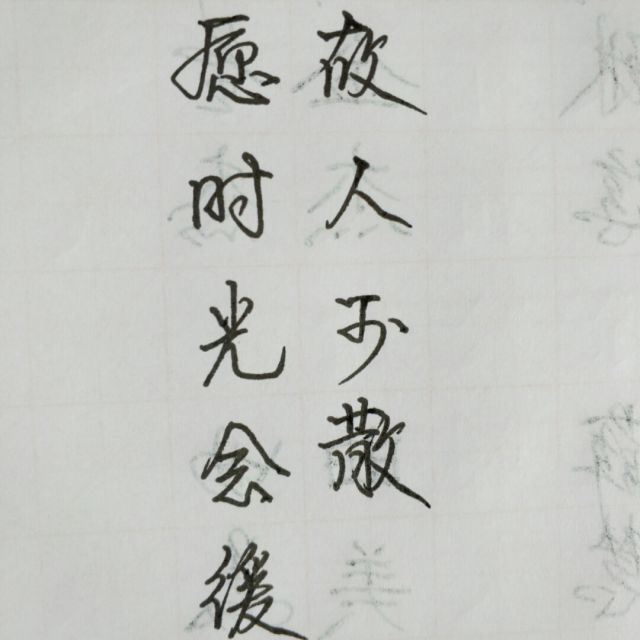 愿时光会缓
故人不散